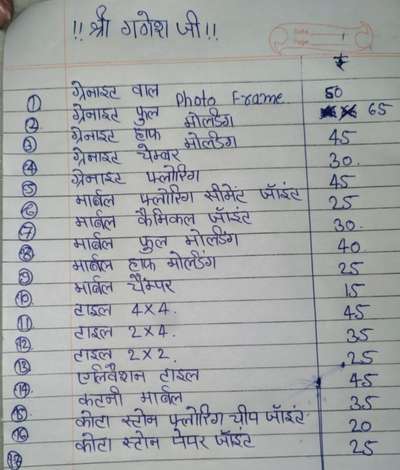 !! श्री गणेश जी !!
₹
① ग्रेनाइट वाल Photo Frame 50
② ग्रेनाइट फुल मोलडिंग 65
③ ग्रेनाइट हाफ मोलडिंग 45
④ ग्रेनाइट चेम्बर 30.
⑤ ग्रेनाइट फ्लोरिंग 45
⑥ मार्बल फ्लोरिंग सीमेंट जॉइंट 25
⑦ मार्बल कैमिकल जॉइंट 30.
⑧ मार्बल फुल मोलडिंग 40
⑨ मार्बल हाफ मोलडिंग 25
⑩ मार्बल चैम्पर 15
⑪ टाइल 4×4. 45
⑫ टाइल 2×4. 35
⑬ टाइल 2×2. 25
⑭ एलिवेशन टाइल 45
⑮ कटनी मार्बल 35
⑯ कोटा स्टोन फ्लोरिंग चीप जॉइंट 20
⑰ कोटा स्टोन पेपर जॉइंट 25